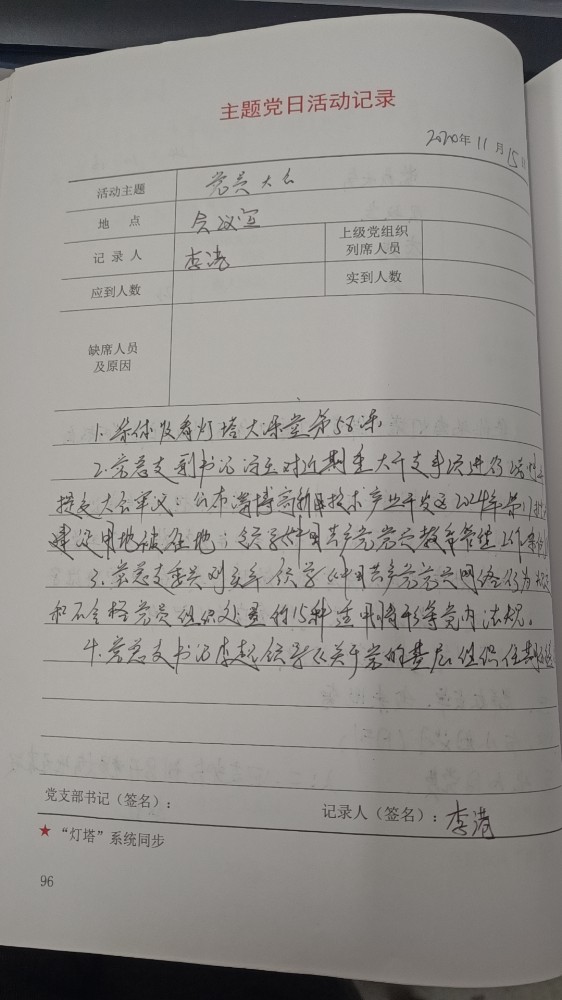 主题党日活动记录
2020年11月15日
活动主题 党员大会
地 点 会议室
记 录 人 李
上级党组织
列席人员
应到人数
实到人数
缺席人员
及原因
1. 集体收看灯塔大课堂第58课
2. 党总支副书记 对近期重大 事项进行
提交大会审议：公布淄博高新技术产业开发区2024年第
建设用地 ；领学《中国共产党党员教育管理工作条例》
3. 党总支委员刘 领学《中国共产党党员网络行为
和不合格党员组织处置的15种适用情形等党内法规。
4. 党总支书记李 领学《关于党的基层组织任期
党支部书记（签名）：
记录人（签名）：李
★ “灯塔”系统同步
96